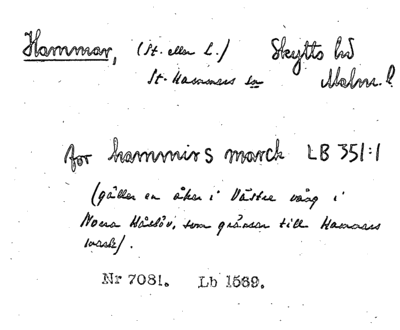 Hammar, (St. eller L.) Skytts hd
St. Hammars sn Malm. l.
for hammirs marck LB 351:1
(gäller en åker i Västre vång i
Norra Håslöv, som gränsar till Hammars
mark).
Nr 7081. Lb 1569.